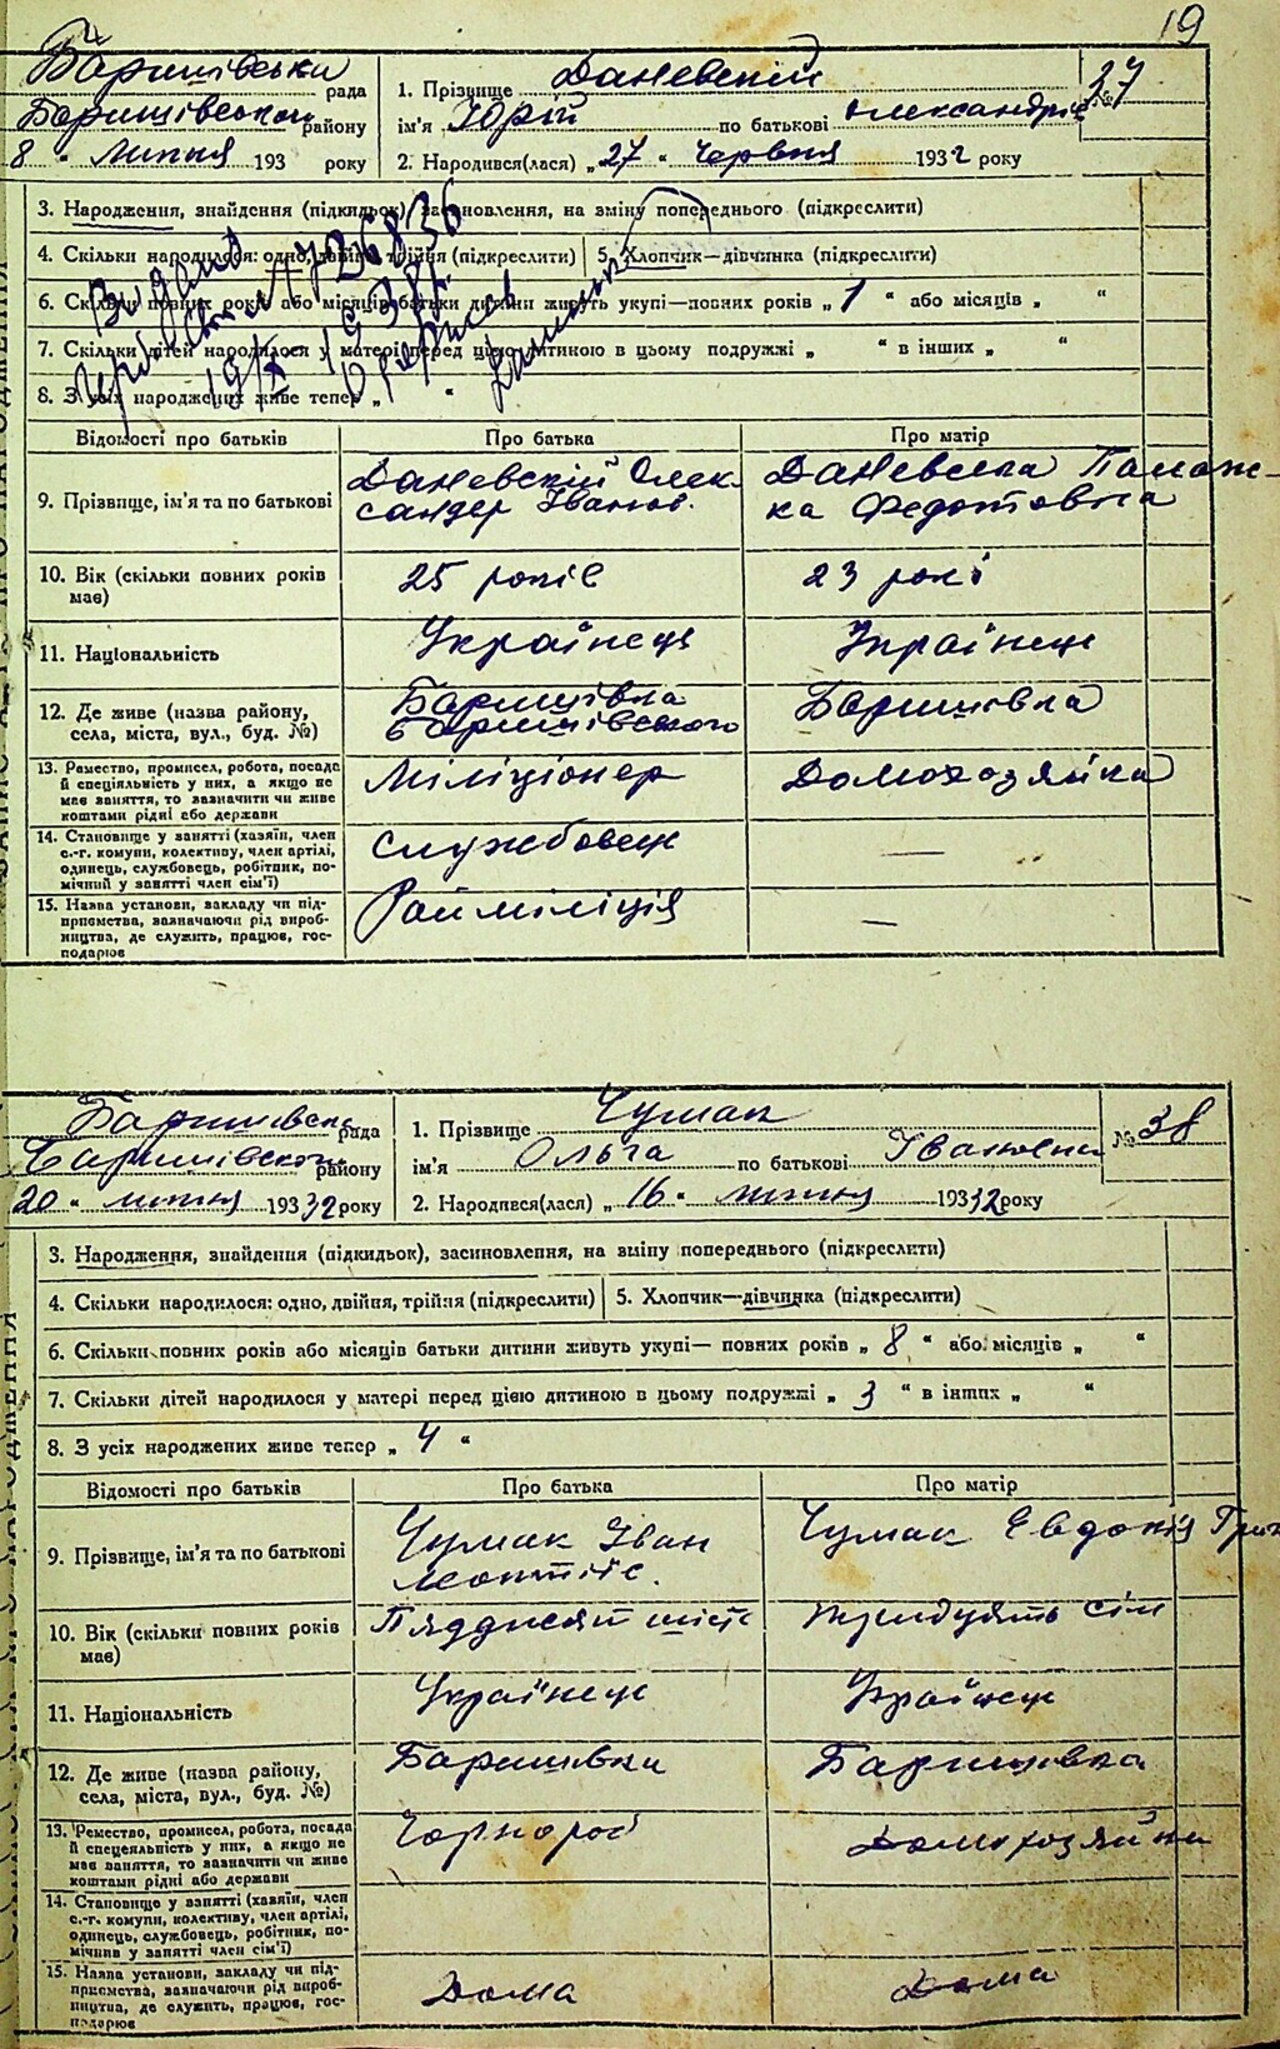 19
Баришівська рада
Баришівського району
8 " липня 193 року
1. Прізвище Даневскій
ім'я Юрій по батькові Олександрів
№ 37
2. Народився(лася) „27 " Червня 1932 року
3. Народження, знайдення (підкидьок), засиновлення, на зміну попереднього (підкреслити)
4. Скільки народилося: одно, двійня, трійня (підкреслити)
5. Хлопчик—дівчинка (підкреслити)
6. Скільки повних років або місяців батьки дитини живуть укупі—повних років „ 1 " або місяців „ "
7. Скільки дітей народилося у матері перед цією дитиною в цьому подружжі „ " в інших „ "
8. З усіх народжених живе тепер „ "
726836
Відомості про батьків
Про батька
Про матір
9. Прізвище, ім'я та по батькові
Даневскій Олек-
сандер Іванов.
Даневська Палаж-
ка Федотовна
10. Вік (скільки повних років
має)
25 років
23 рокі
11. Національність
Українець
Українець
12. Де живе (назва району,
села, міста, вул., буд. №)
Баришівка
Баришівського
Баришовка
13. Ремество, промисел, робота, посада
й спеціяльність у них, а якщо не
має заняття, то зазначити чи живе
коштами рідні або держави
Міліціонер
Домохозяйка
14. Становище у занятті (хазяїн, член
с.-г. комуни, колективу, член артілі,
одинець, службовець, робітник, по-
мічний у занятті член сім'ї)
Службовець
—
15. Назва установи, закладу чи під-
приємства, зазначаючи рід вироб-
ництва, де служить, працює, гос-
подарює
Райміліція
—
Баришівська рада
Баришівського району
20 " липня 193 32 року
1. Прізвище Чумак
ім'я Ольга по батькові Івановна
№ 38
2. Народився(лася) „ 16 " липня 193 32 року
3. Народження, знайдення (підкидьок), засиновлення, на зміну попереднього (підкреслити)
4. Скільки народилося: одно, двійня, трійня (підкреслити)
5. Хлопчик—дівчинка (підкреслити)
6. Скільки повних років або місяців батьки дитини живуть укупі— повних років „ 8 " або місяців „ "
7. Скільки дітей народилося у матері перед цією дитиною в цьому подружжі „ 3 " в інших „ "
8. З усіх народжених живе тепер „ 4 "
Відомості про батьків
Про батька
Про матір
9. Прізвище, ім'я та по батькові
Чумак Іван
Чумак Евдокія Григ
10. Вік (скільки повних років
має)
Пяддисят шість
тридцять сім
11. Національність
Українець
Українець
12. Де живе (назва району,
села, міста, вул., буд. №)
Баришівка
Баришовка
13. Ремество, промисел, робота, посада
й спецеяльність у них, а якщо не
має заняття, то зазначити чи живе
коштами рідні або держави
Чорнороб
Домохозяйка
14. Становище у занятті (хазяїн, член
с.-г. комуни, колективу, член артілі,
одинець, службовець, робітник, по-
мічник у занятті член сім'ї)
15. Назва установи, закладу чи під-
приємства, зазначаючи рід вироб-
ництва, де служить, працює, гос-
подарює
Дома
Дома